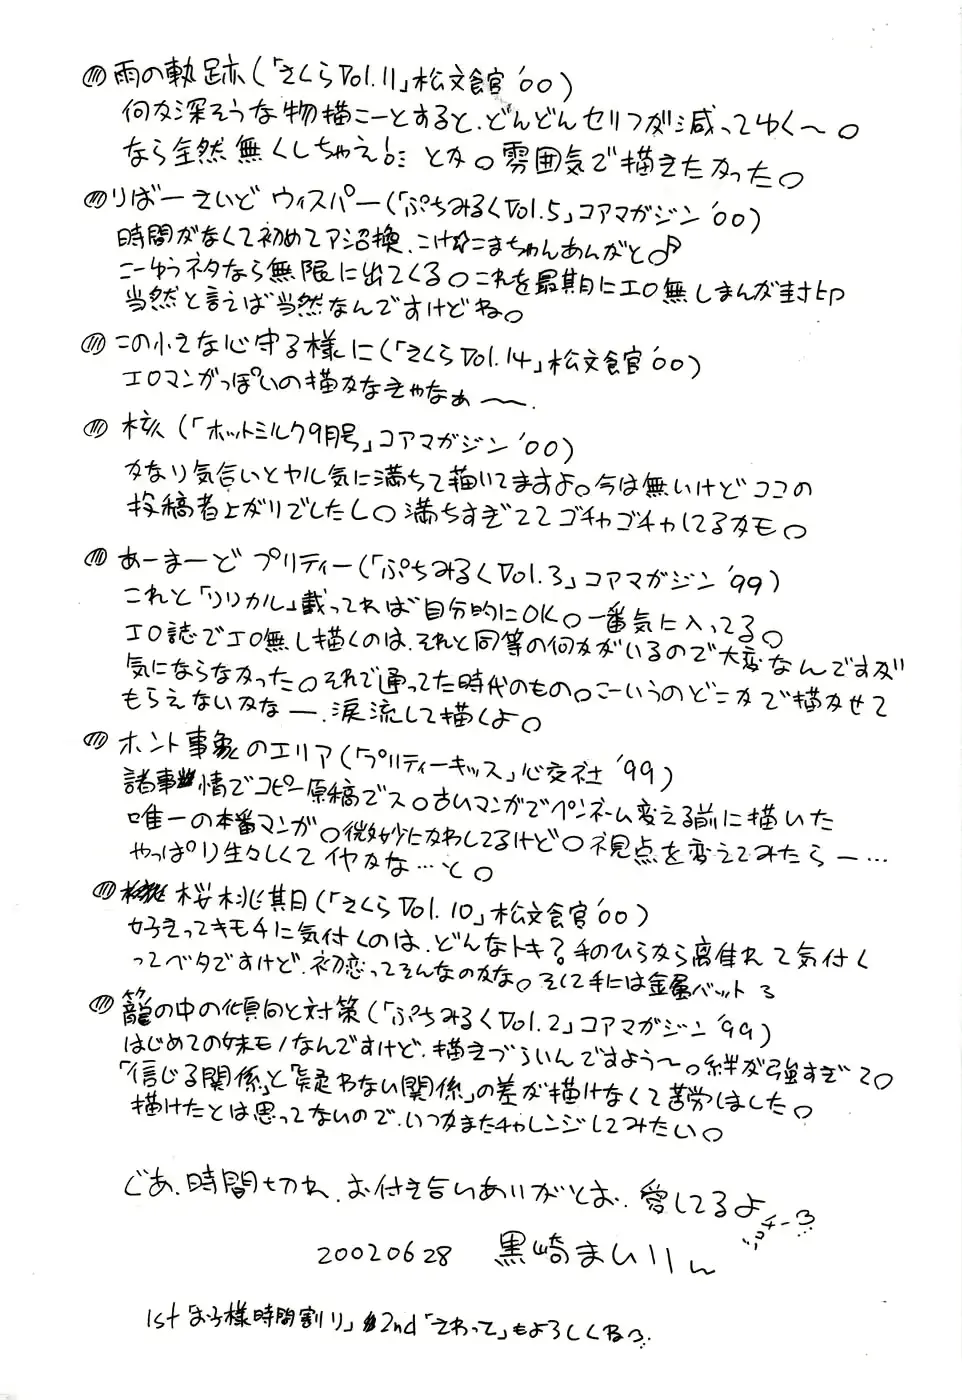 雨の軌跡(「さくらVol.11」松文館'00)
何か深そうな物描こーとすると、どんどんセリフが減ってゆく〜。
なら全然無くしちゃえ!! とか。雰囲気で描きたかった。
りばーさいど ウィスパー(「ぷちみるくVol.5」コアマガジン'00)
時間がなくて初めてア召換、こけ☆こまちゃんあんがと♪
こーゆうネタなら無限に出てくる。これを最期にエロ無しまんが封印
当然と言えば当然なんですけどね。
この小さな心守る様に(「さくらVol.14」松文館'00)
エロマンガっぽいの描かなきゃなぁ〜〜.
核(「ホットミルク9月号」コアマガジン'00)
かなり気合いとヤル気に満ちて描いてますよ。今は無いけどココの
投稿者上がりでしたし。満ちすぎててゴチャゴチャしてるかも。
あーまーど プリティー(「ぷちみるくVol.3」コアマガジン'99)
これと「リリカル」載ってれば自分的にOK。一番気に入ってる。
エロ誌でエロ無し描くのは、それと同等の何かがいるので大変なんですが
気にならなかった。それで通ってた時代のもの。こーいうのどこかで描かせて
もらえないかなー、涙流して描くよ。
ホント事象のエリア(「プリティーキッス」心交社'99)
諸事情でコピー原稿でス。古いマンガでペンネーム変える前に描いた
唯一の本番マンガ。微妙にかわしてるけど。視点を変えてみたらー…
やっぱり生々しくてイヤかな…と。
桜桃期(「さくらVol.10」松文館'00)
好きってキモチに気付くのは、どんなトキ?手のひらから離れて気付く
ってベタですけど、初恋ってそんなのかな。そして手には金属バット
籠の中の傾向と対策(「ぷちみるくVol.2」コアマガジン'99)
はじめての妹モノなんですけど、描きづらいんですよう〜。絆が強すぎて。
「信じる関係」と「疑わない関係」の差が描けなくて苦労しました。
描けたとは思ってないので、いつかまたチャレンジしてみたい。
じあ、時間切れ、お付き合いありがとお、愛してるよ
チュー3
20020628 黒崎まいりん
1st「お子様時間割り」2nd「さわって」もよろしくねっ.